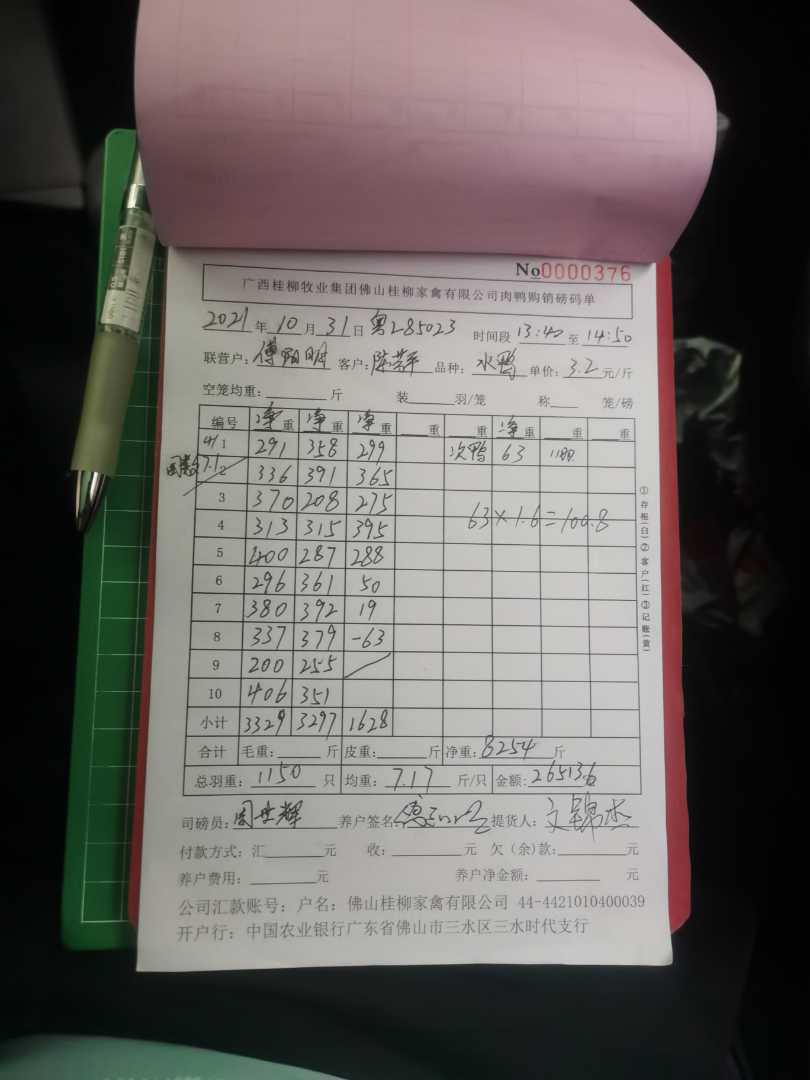 No0000376
广西桂柳牧业集团佛山桂柳家禽有限公司肉鸭购销磅码单
2021年10月31日 粤285023 时间段13:40至14:50
联营户: 客户:陈 品种:水鸭 单价:3.2元/斤
空笼均重: 斤 装 羽/笼 称 笼/磅
编号 净重 净重 净重 重 重 净重 重 重
1 291 358 299 次鸭 63
7.1 2 336 391 365
3 370 208 275
63×1.6=100.8
4 313 315 395
5 400 287 288
6 296 361 50
7 380 392 19
8 337 379 -63
9 200 255
10 406 351
小计 3329 3297 1628
合计 毛重: 斤 皮重: 斤 净重:8254斤
总羽重:1150只 均重:7.17斤/只 金额:265136
司磅员:周世辉 养户签名: 提货人:文锦杰
付款方式:汇 元 收: 元 欠(余)款: 元
养户费用: 元 养户净金额: 元
公司汇款账号:户名:佛山桂柳家禽有限公司 44-4421010400039
开户行:中国农业银行广东省佛山市三水区三水时代支行
①存根(白)②客户(红)③记账(黄)